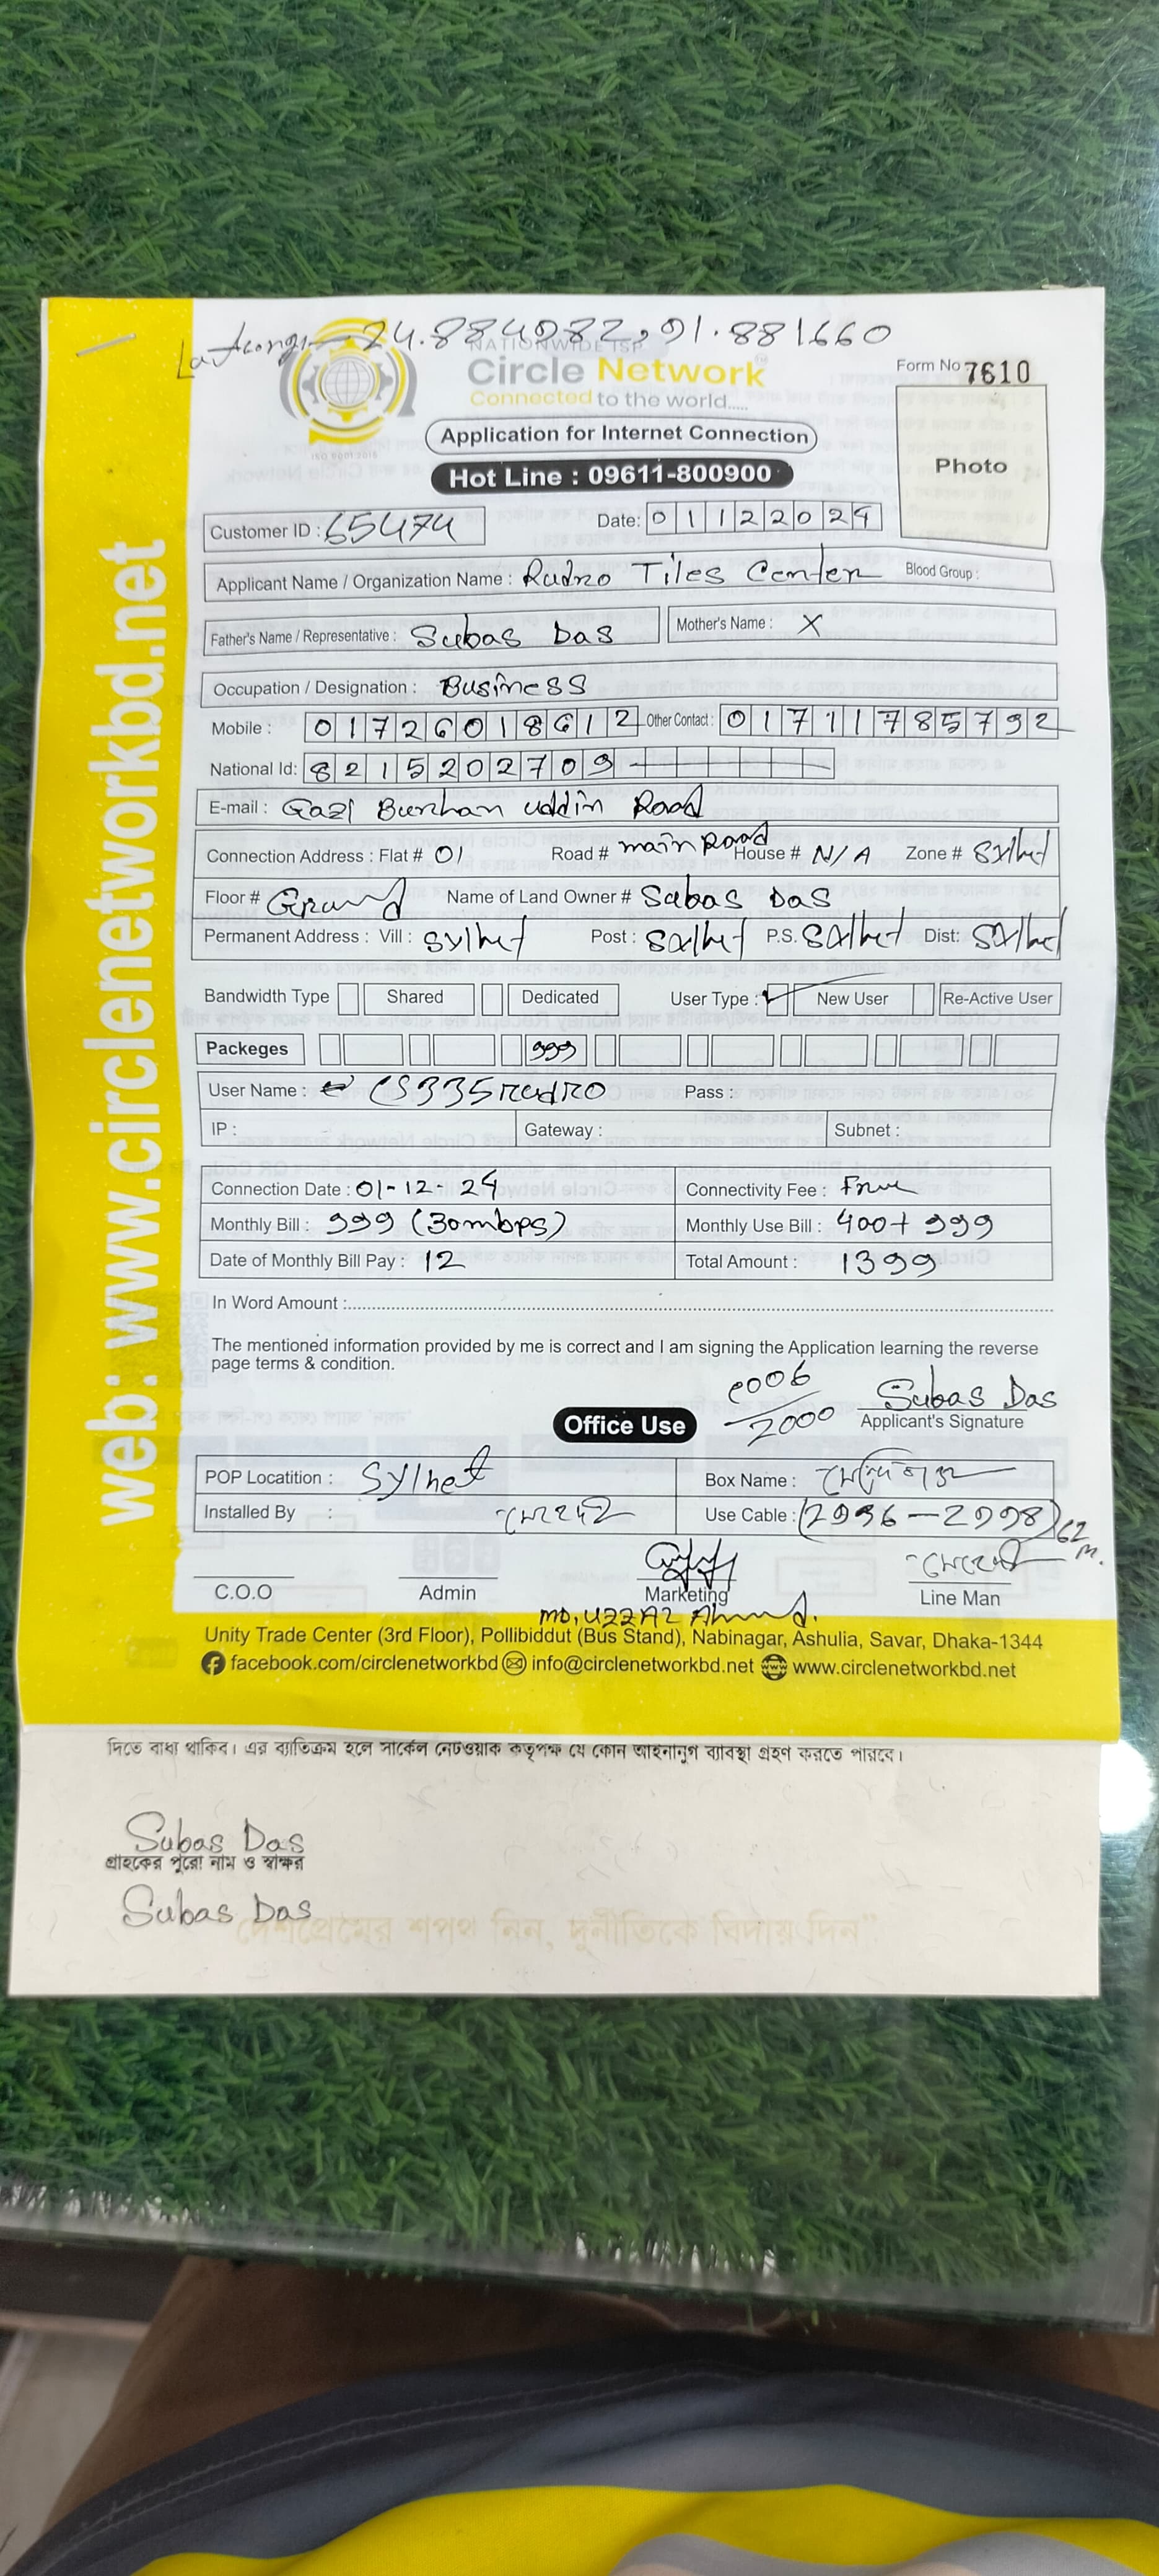 Lat Long:- 24.884982, 91.881660
NATIONWIDE ISP
Circle Network
Connected to the world.....
ISO 9001:2015
Form No 7610
Photo
Application for Internet Connection
Hot Line : 09611-800900
Customer ID : 65474
Date: 01122024
Applicant Name / Organization Name : Rudro Tiles Center Blood Group :
Father's Name / Representative : Subas Das Mother's Name : X
Occupation / Designation : Business
Mobile : 01726018612 Other Contact : 01711785792
National Id: 8215202709
E-mail : Gazi Burhan uddin Road
Connection Address : Flat # 01 Road # main Road House # N/A Zone # Sylhet
Floor # Ground Name of Land Owner # Subas Das
Permanent Address : Vill : Sylhet Post : Sylhet P.S. Sylhet Dist: Sylhet
Bandwidth Type Shared Dedicated User Type : New User Re-Active User
Packeges 999
User Name : CS335rudro Pass :
IP : Gateway : Subnet :
Connection Date : 01-12-24 Connectivity Fee : Free
Monthly Bill : 999 (30mbps) Monthly Use Bill : 400+ 999
Date of Monthly Bill Pay : 12 Total Amount : 1399
In Word Amount :
The mentioned information provided by me is correct and I am signing the Application learning the reverse
page terms & condition.
2000
Subas Das
Office Use
Applicant's Signature
POP Locatition : Sylhet Box Name :
Installed By : Use Cable : (2936-2998) 62 m.
C.O.O Admin Marketing Line Man
MD, UZZAL Ahmed.
Unity Trade Center (3rd Floor), Pollibiddut (Bus Stand), Nabinagar, Ashulia, Savar, Dhaka-1344
facebook.com/circlenetworkbd info@circlenetworkbd.net www.circlenetworkbd.net
web: www.circlenetworkbd.net
দিতে বাধ্য থাকিব। এর ব্যতিক্রম হলে সার্কেল নেটওয়ার্ক কতৃপক্ষ যে কোন আইনানুগ ব্যাবস্থা গ্রহণ করতে পারবে।
Subas Das
গ্রাহকের পুরো নাম ও স্বাক্ষর
Subas Das
দেশপ্রেমের শপথ নিন, দুর্নীতিকে বিদায় দিন"